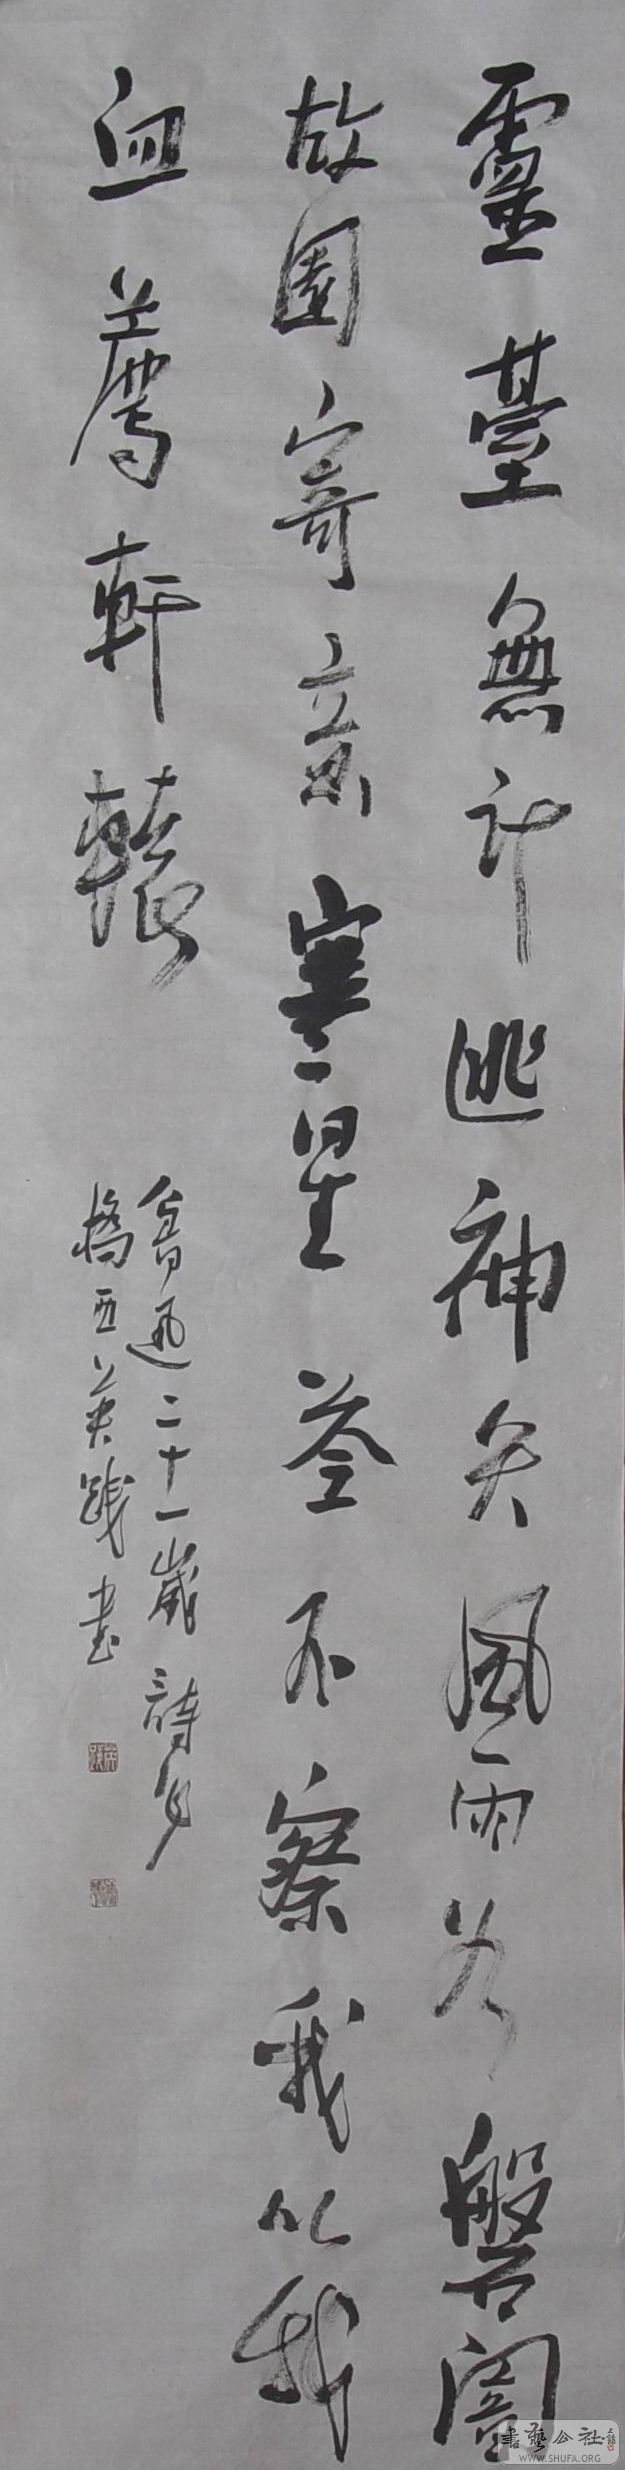 靈臺無計逃神矢風雨若磐闇
故園寄意寒星荃不察我以我
血薦軒轅
魯迅二十一歲詩句
橋西英踐書
書藝公社
WWW.SHUFA.ORG